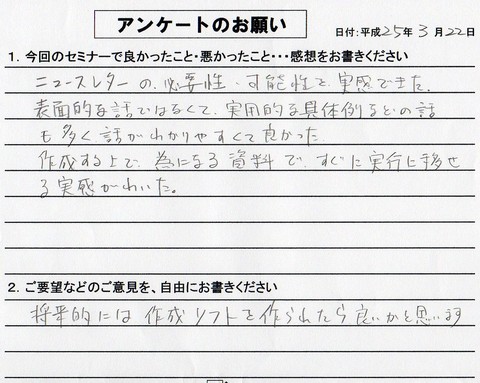 アンケートのお願い
日付:平成25年3月22日
1. 今回のセミナーで良かったこと・悪かったこと・・・感想をお書きください
ニュースレターの必要性・可能性を実感できた。
表面的な話ではなくて、実用的な具体例などの話
も多く話がわかりやすくて良かった。
作成する上で、為になる資料で、すぐに実行に移せ
る実感がわいた。
2. ご要望などのご意見を、自由にお書きください
将来的には作成ソフトを作られたら良いかと思います